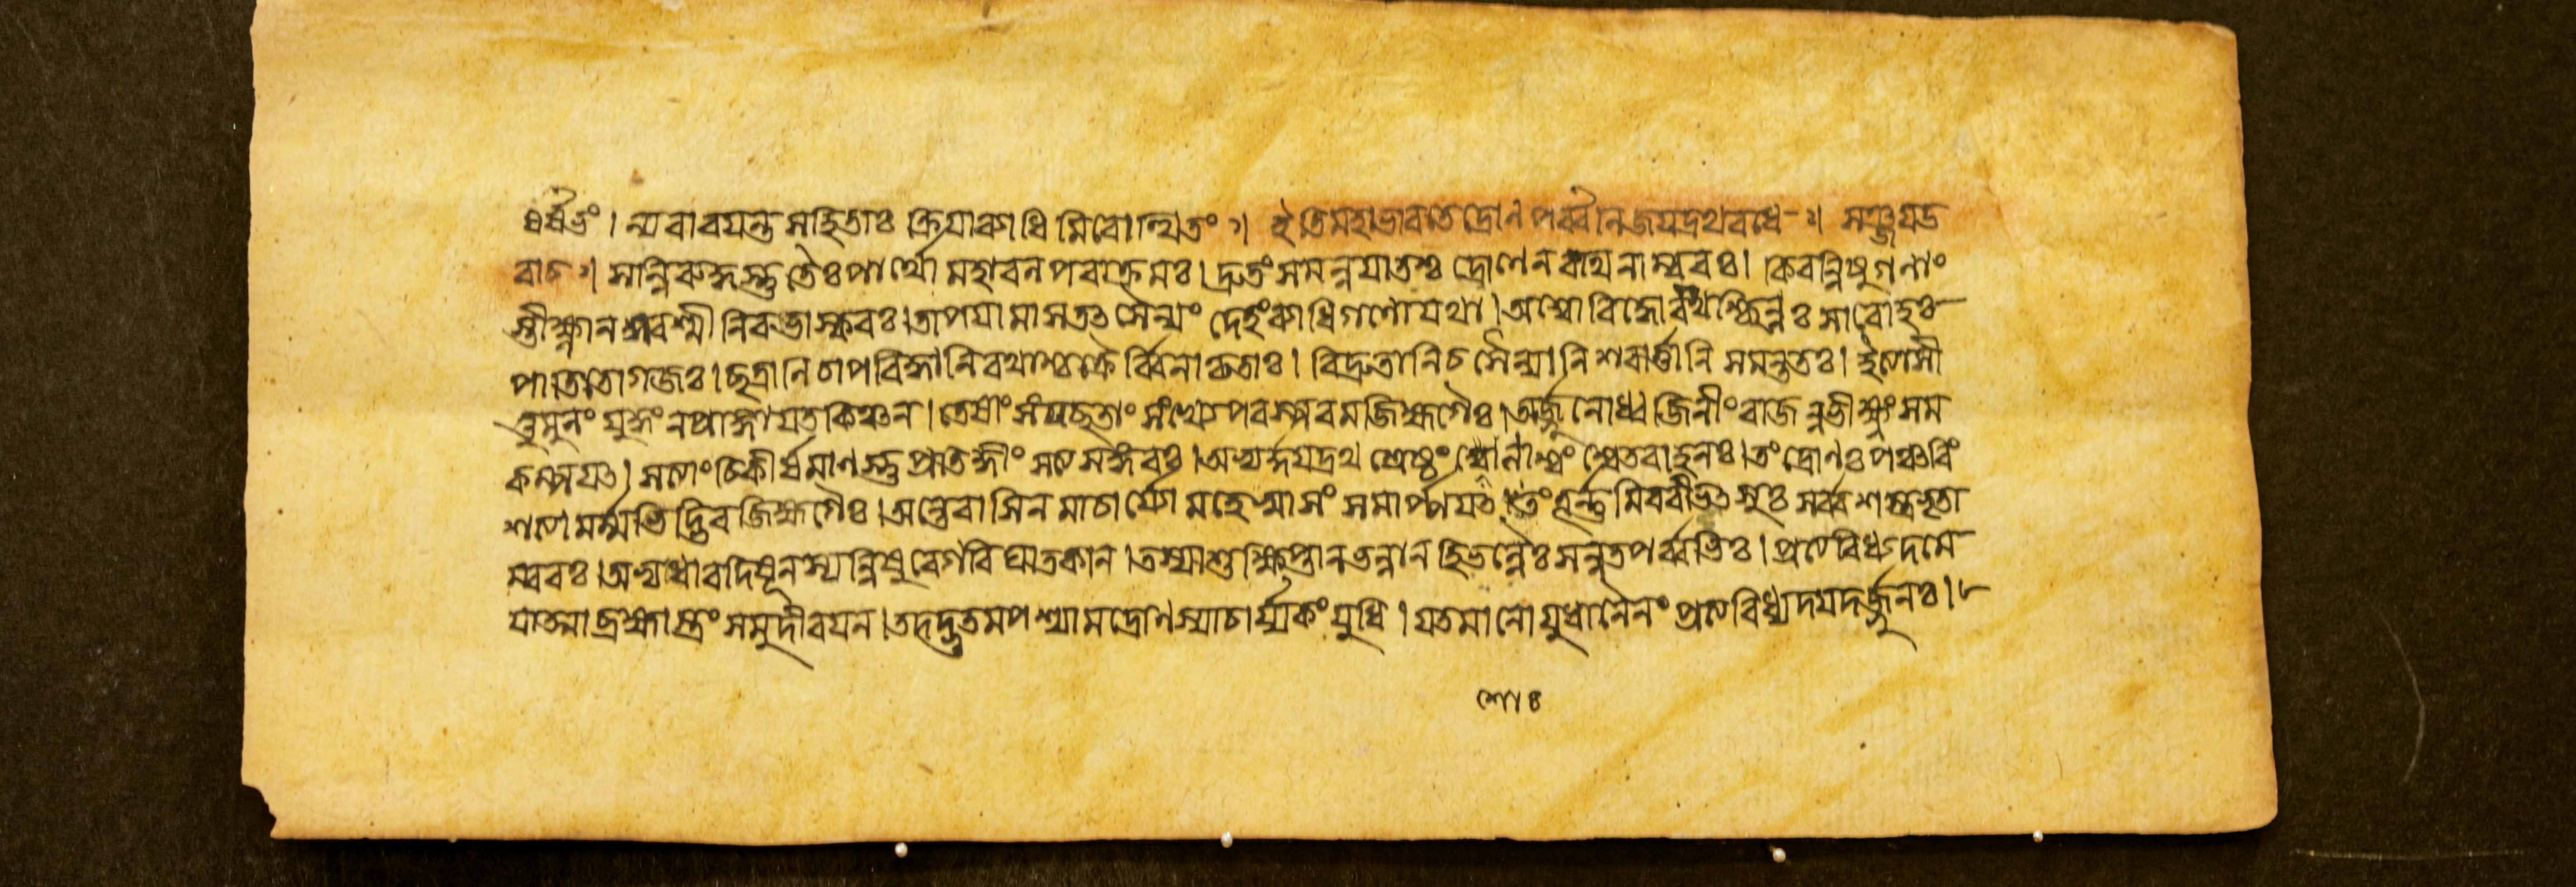 ধর্ষতং । ন্যবারয়ন্ত সহিতাঃ ক্রিয়াব্যাধি মিবোত্থিতং ৽। ইতিমহাভারতে দ্রোণপর্ব্বনিজয়দ্রথবধে ৽। সঞ্জয়উ
বাচ ৽। সন্নিরুদ্ধস্তু তৈঃ পার্থো মহাবলপরাক্রমঃ । দ্রুতং সমনুয়াতশ্চ দ্রোণেন রথিনাম্বরঃ । কিরন্নিষুগণাং
স্তীক্ষ্ণান স্বরশ্মী নিবভাস্করঃ । তাপয়ামাসতৎ সৈন্যং দেহং ব্যাধিগণোয়থা । অশ্বোবিদ্ধোরথশ্ছিন্নঃ সারোহঃ
পাতিতোগজঃ । ছত্রানি চাপবিদ্ধানি রথাশ্চক্রৈর্ব্বিনাকৃতাঃ । বিদ্রুতানিচ সৈন্যানি শরার্ত্তানি সমন্ততঃ । ইত্যাসী
ত্তুমুলং যুদ্ধং নপ্রাজ্ঞায়তকিঞ্চন । তেষাং সংযচ্ছতাং সংখ্যে পরস্পরমজিহ্মগৈঃ । অর্জ্জুনোধ্বজিনীং রাজন্নভীক্ষ্ণং সম
কম্পয়ৎ । সত্যাং চিকীর্ষমাণস্তু প্রতিজ্ঞাং সত্যসঙ্গরঃ । অভ্যর্দ্দয়দ্রথশ্রেষ্ঠং শোনাশ্বং শ্বেতবাহনঃ । তং দ্রোণঃ পঞ্চবিং
শত্যা মর্ম্মভিদ্ভিরজিহ্মগৈঃ । অন্তেবাসিন মাচার্য্যো মহেষ্বাসং সমার্পয়ৎ । তং তূর্ন্নমিববীভৎসুঃ সর্ব্বশস্ত্রভৃতা
ম্বরঃ । অভ্যধাবদিষূনস্যন্নিষুবেগবিঘাতকান । তস্যাশুক্ষিপ্তান ভল্লান হিভল্লৈঃ সন্নতপর্ব্বভিঃ । প্রত্যবিধ্যদমে
য়াত্মা ব্রহ্মাস্ত্রং সমুদীরয়ন । তদদ্ভুতমপশ্যামদ্রোণস্যাচার্য্যকং যুধি । যতমানোযুধানৈনং প্রত্যবিধ্যদয়দর্জ্জুনঃ ।